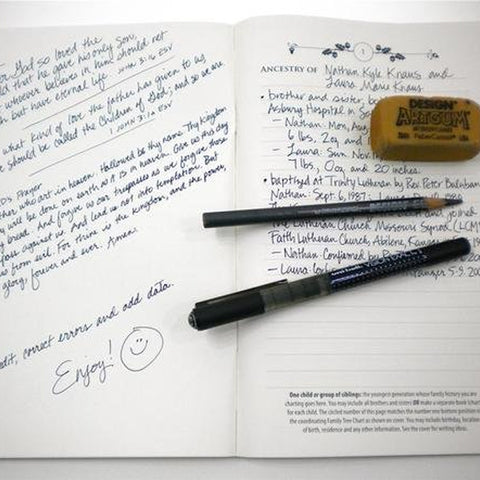 God so loved the
that he gave his only Son,
whoever believes in him should not
but have eternal life JOHN 3:16 ESV
what kind of love the father has given to us
we should be called the children of God; and so we are
1 JOHN 3:1a ESV
Prayer
who art in heaven. Hallowed be thy name. Thy kingdom
will be done on earth as it is in heaven. Give us this day
bread. And forgive us our trespasses as we forgive those
against us. And lead us not into temptation. But
us from evil. For thine is the kingdom, and the power,
glory, forever and ever. Amen.
edit, correct errors and add data.
Enjoy!
1
ANCESTRY OF Nathan Kyle Knaus and
Laura Marie Knaus
• brother and sister, b
Asbury Hospital in S
– Nathan: Mon, Au
6 lbs, 2 oz, and
– Laura: Sun, No
7 lbs, 0 oz and 20 inches.
• baptized at Trinity Lutheran by Rev. Peter
Nathan: Sept. 6, 1987;
and joined
The Lutheran Church Missouri Synod (LCM
Faith Lutheran Church, Abilene, Kansas
– Nathan: Confirmed by
– Laura:
5-9-200
DESIGN
ARTGUM
FaberCastell
One child or group of siblings: the youngest generation whose family history you are
charting goes here. You may include all brothers and sisters OR make a separate book (chart
for each child. The circled number of this page matches the number in the bottom position
the coordinating Family Tree Chart as shown on cover. You may include birthday, location
of birth, residence and any other information. See the cover for writing ideas.